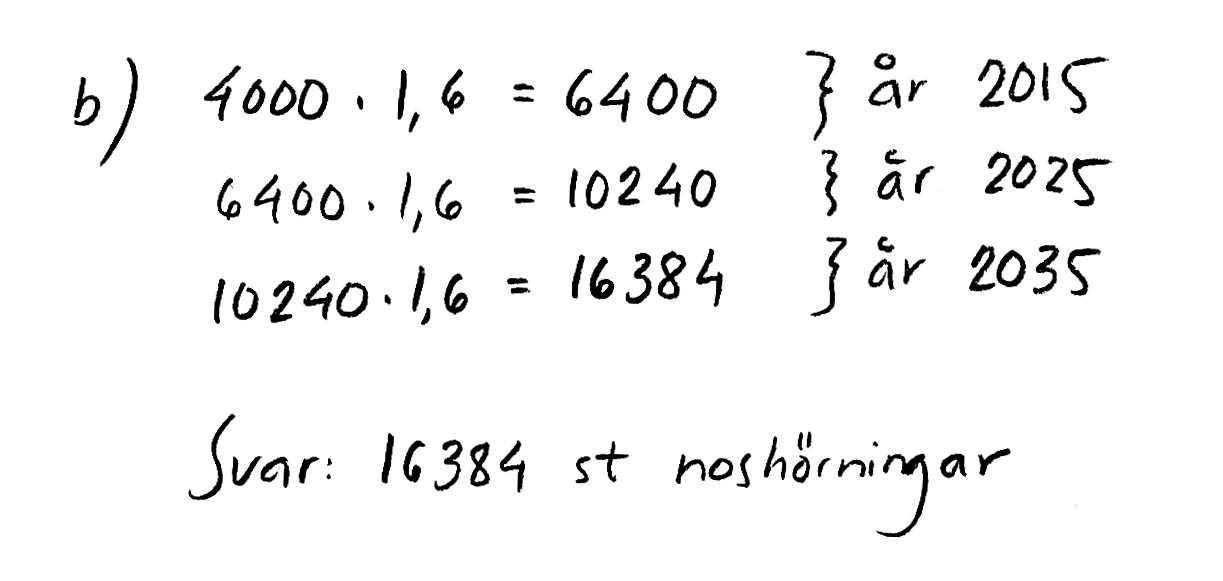 b) 4000 · 1,6 = 6400 } år 2015
6400 · 1,6 = 10240 } år 2025
10240 · 1,6 = 16384 } år 2035
Svar: 16384 st noshörningar